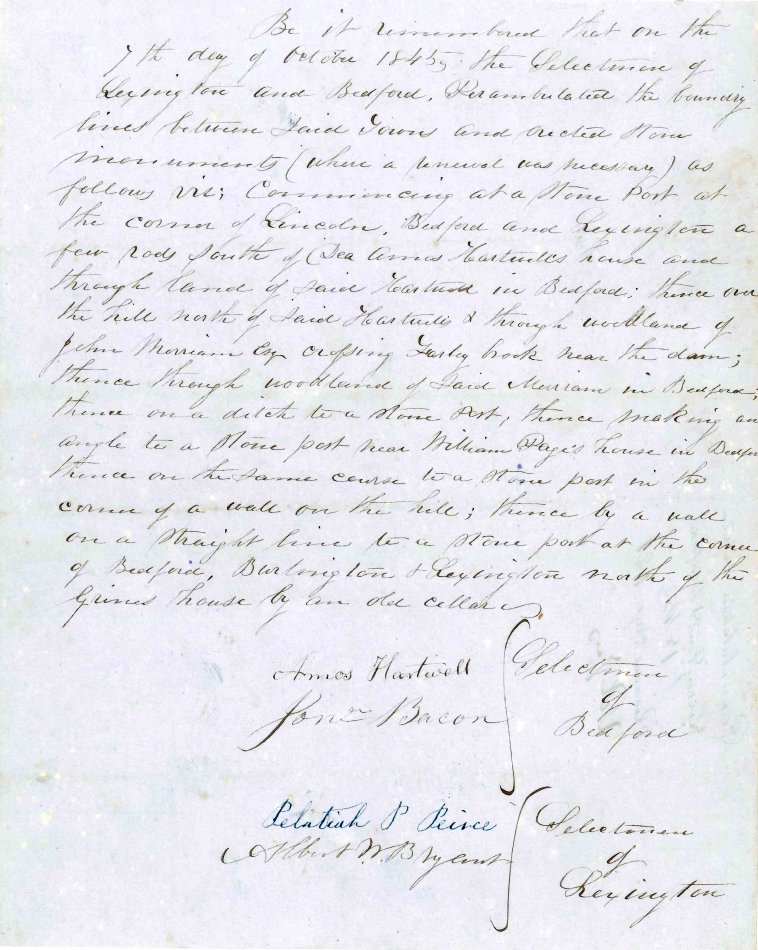 Be it remembered that on the
7th day of October 1845, the Selectmen of
Lexington and Bedford, Perambulated the boundry
lines between said Towns and erected stone
monuments (where a renewal was necessary) as
follows viz; Commencing at a Stone Post at
the corner of Lincoln, Bedford and Lexington a
few rods South of Dea Amos Hartwells house and
through land of said Hartwell in Bedford; thence over
the hill north of said Hartwells & through woodland of
John Merriam Esq crossing Farley brook near the dam;
thence through woodland of said Merriam in Bedford;
thence on a ditch to a stone Post; thence making an
angle to a stone post near William Page's house in Bedfor
thence on the same course to a stone post in the
corner of a wall on the hill; thence by a wall
on a straight line to a stone post at the corner
of Bedford, Burlington & Lexington north of the
Grimes house by an old cellar
Amos Hartwell
Jonª Bacon
Selectmen
of
Bedford
Pelatiah P Peirce
Albert W. Bryant
Selectmen
of
Lexington